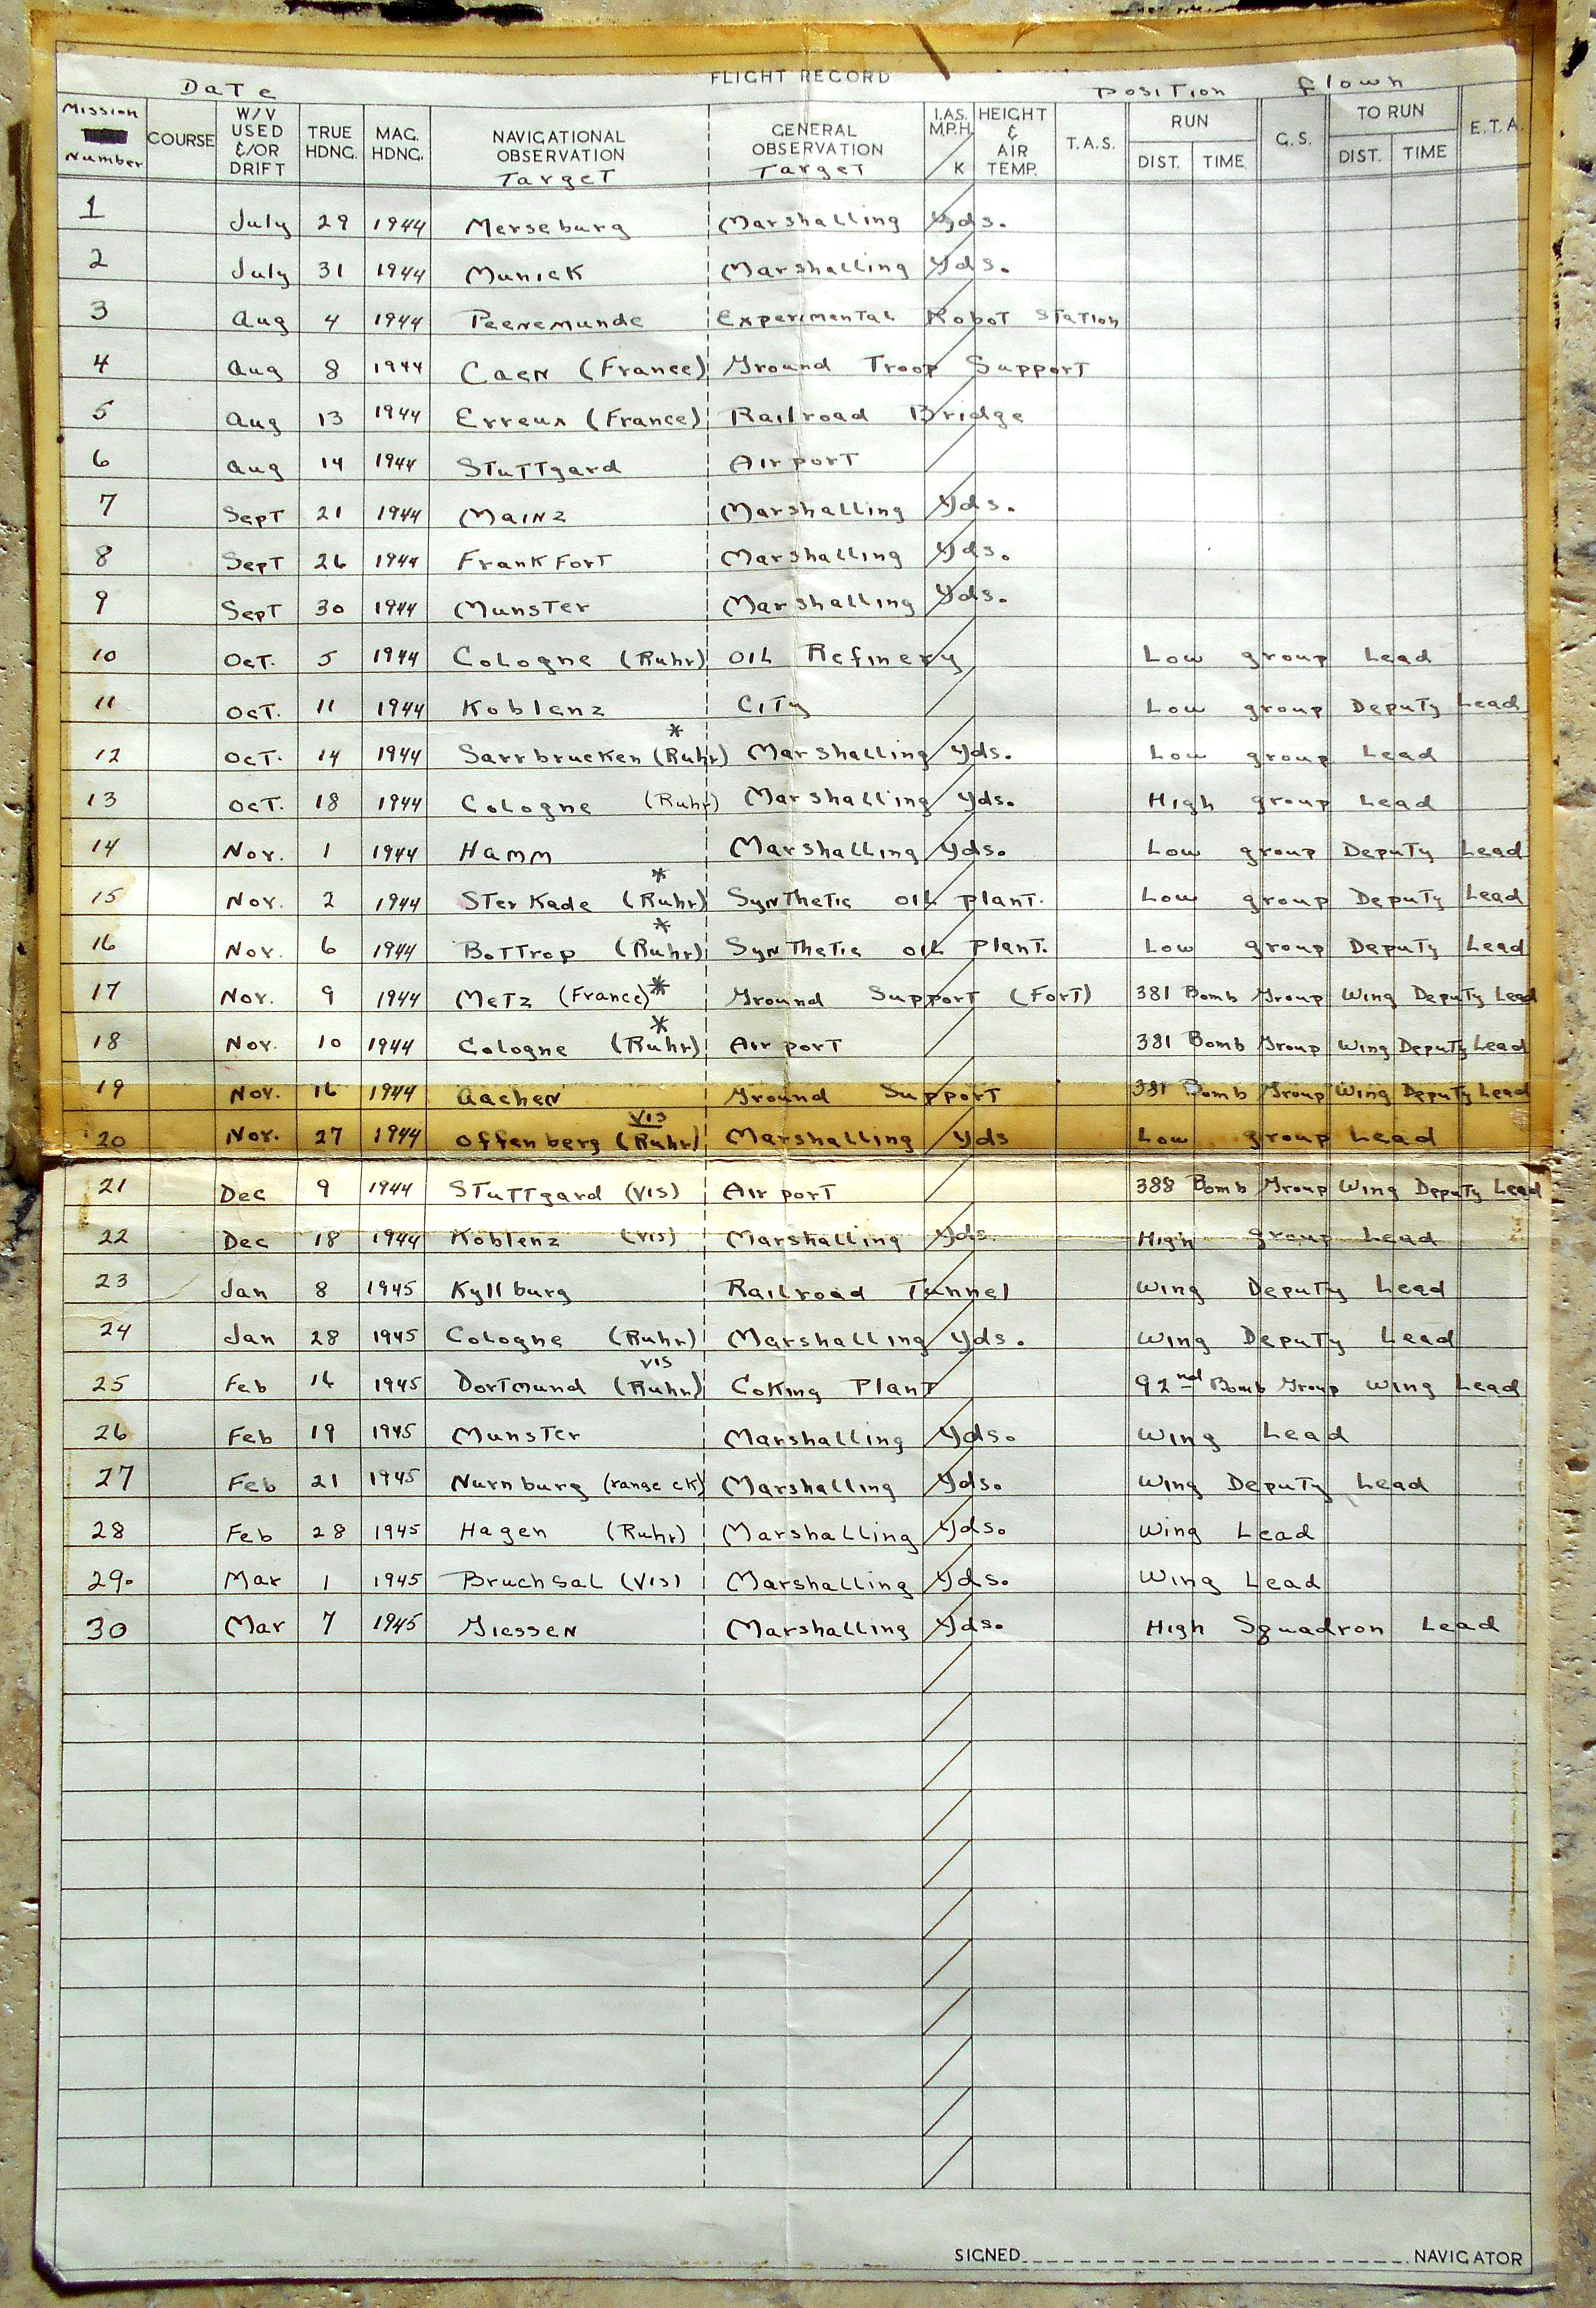 FLIGHT RECORD
Date Position flown
Mission Number COURSE W/V USED &/OR DRIFT TRUE HDNG. MAG. HDNG. NAVIGATIONAL OBSERVATION Target GENERAL OBSERVATION Target I.A.S. M.P.H. K HEIGHT & AIR TEMP. T.A.S. RUN DIST. TIME G.S. TO RUN DIST. TIME E.T.A.
1 July 29 1944 Merseburg Marshalling Yds.
2 July 31 1944 Munick Marshalling Yds.
3 Aug 4 1944 Peenemunde Experimental Robot Station
4 Aug 8 1944 Caen (France) Ground Troop Support
5 Aug 13 1944 Erreux (France) Railroad Bridge
6 Aug 14 1944 Stuttgard Airport
7 Sept 21 1944 Mainz Marshalling Yds.
8 Sept 26 1944 Frankfort Marshalling Yds.
9 Sept 30 1944 Munster Marshalling Yds.
10 Oct. 5 1944 Cologne (Ruhr) Oil Refinery Low group Lead
11 Oct. 11 1944 Koblenz City Low group Deputy Lead
12 Oct. 14 1944 Sarrbrucken (Ruhr) * Marshalling Yds. Low group Lead
13 Oct. 18 1944 Cologne (Ruhr) Marshalling Yds. High group Lead
14 Nov. 1 1944 Hamm Marshalling Yds. Low group Deputy Lead
15 Nov. 2 1944 Sterkade (Ruhr) * Synthetic oil plant. Low group Deputy Lead
16 Nov. 6 1944 Bottrop (Ruhr) * Synthetic oil plant. Low group Deputy Lead
17 Nov. 9 1944 Metz (France) * Ground Support (Fort) 381 Bomb Group Wing Deputy Lead
18 Nov. 10 1944 Cologne (Ruhr) * Airport 381 Bomb Group Wing Deputy Lead
19 Nov. 16 1944 Aachen Ground Support 381 Bomb Group Wing Deputy Lead
20 Nov. 27 1944 Offenberg (Ruhr) Vis Marshalling Yds Low group Lead
21 Dec 9 1944 Stuttgard (Vis) Airport 388 Bomb Group Wing Deputy Lead
22 Dec 18 1944 Koblenz (Vis) Marshalling Yds. High group Lead
23 Jan 8 1945 Kyllburg Railroad Tunnel Wing Deputy Lead
24 Jan 28 1945 Cologne (Ruhr) Marshalling Yds. Wing Deputy Lead
25 Feb 16 1945 Dortmund (Ruhr) Vis Coking Plant 92nd Bomb Group Wing Lead
26 Feb 19 1945 Munster Marshalling Yds. Wing Lead
27 Feb 21 1945 Nurnburg (range ck) Marshalling Yds. Wing Deputy Lead
28 Feb 28 1945 Hagen (Ruhr) Marshalling Yds. Wing Lead
29. Mar 1 1945 Bruchsal (Vis) Marshalling Yds. Wing Lead
30 Mar 7 1945 Giessen Marshalling Yds. High Squadron Lead
SIGNED NAVIGATOR